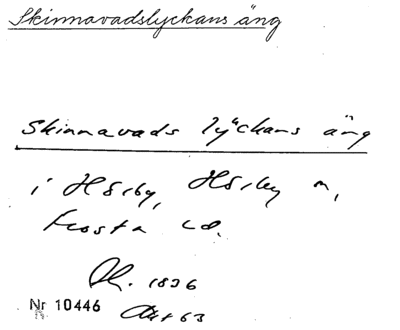 Skinnavadslyckans äng
Skinnavads lyckans äng
i Hörby, Hörby sn,
Frosta hd.
1836
Nr 10446
Akt 63